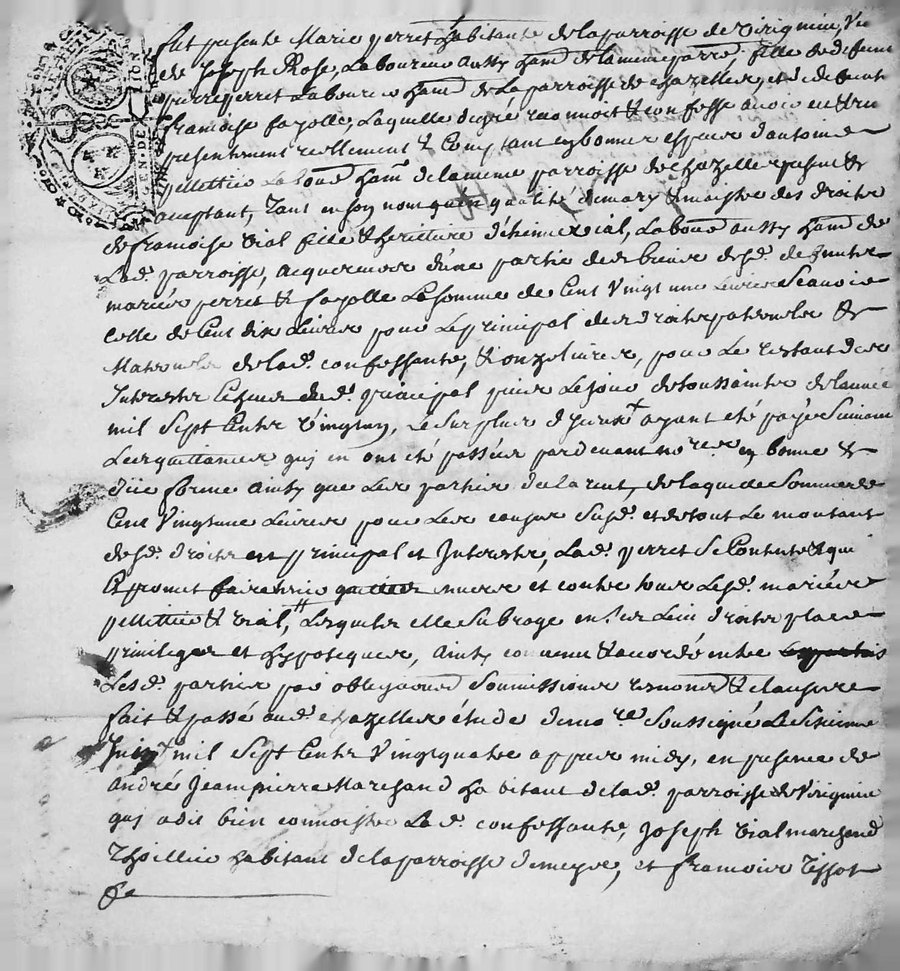 Fut presente Marie perret habitante de la parroisse de Virignin, Ve
de Joseph Rose, Laboureur aussy hant de la meme parre, fille de deffunt
pierre perret Laboureur hant de La parroisse de chazelles, et de deffunte
francoise fayolle, Laquelle de gré reconnoit & confesse avoir eu & receu
presentement reellement & Comptant en bonnes espesses d'antoine
pellettier Laboureur hant de la meme parroisse de chazelles present &
aceptant, Tant en son nom qu'en qualité de mary & maistre des droits
de francoise vial fille & heritiere d'Etienne vial, Laboureur aussy hant de
La de parroisse, acquereur d'une partie des biens desd. deffunts
mariés perret & fayolle La somme de Cent Vingt une Livres Scavoir
Celle de Cent dix Livres pour Le principal des droits paternels &
Maternels de lad. confessante, & onze livres, pour Le restant des
Interests Echeus dud. principal jusques Le jour de toussaints de l'année
mil Sept Cents Vingt, Le surplus d'yceux ayant eté payé Suivant
Les quittances qui en ont été passées pardevant nores en bonne &
due forme ainsy que Les parties declarent, de laquelle Somme de
Cent Vingt une Livres pour Les causes susd. et de tout Le montant
desd. droits en principal et Interests, Lad. perret Se Contente & quitte
Et promet faire tenir quittes envers et contre tous Lesd. mariés
pellettier & vial, Lesquels elle Subroge en ses Lieu droits place
privileges et hypoteques, ainsy convenu & accordé entre
Lesd. parties par obligations Soumissions renons & clauses
fait & passé aud. chazelles étude du nore Soussigné Le Sixieme
Juin mil Sept Cents Vingt quatre appres midy, en presence de
andré Jeanpierre Marchand habitant de lad. parroisse de Virignin
qui a dit bien connoistre Lad. confessante, Joseph vial marchand
Thoillier habitant de la parroisse de meys, et francois Tissot